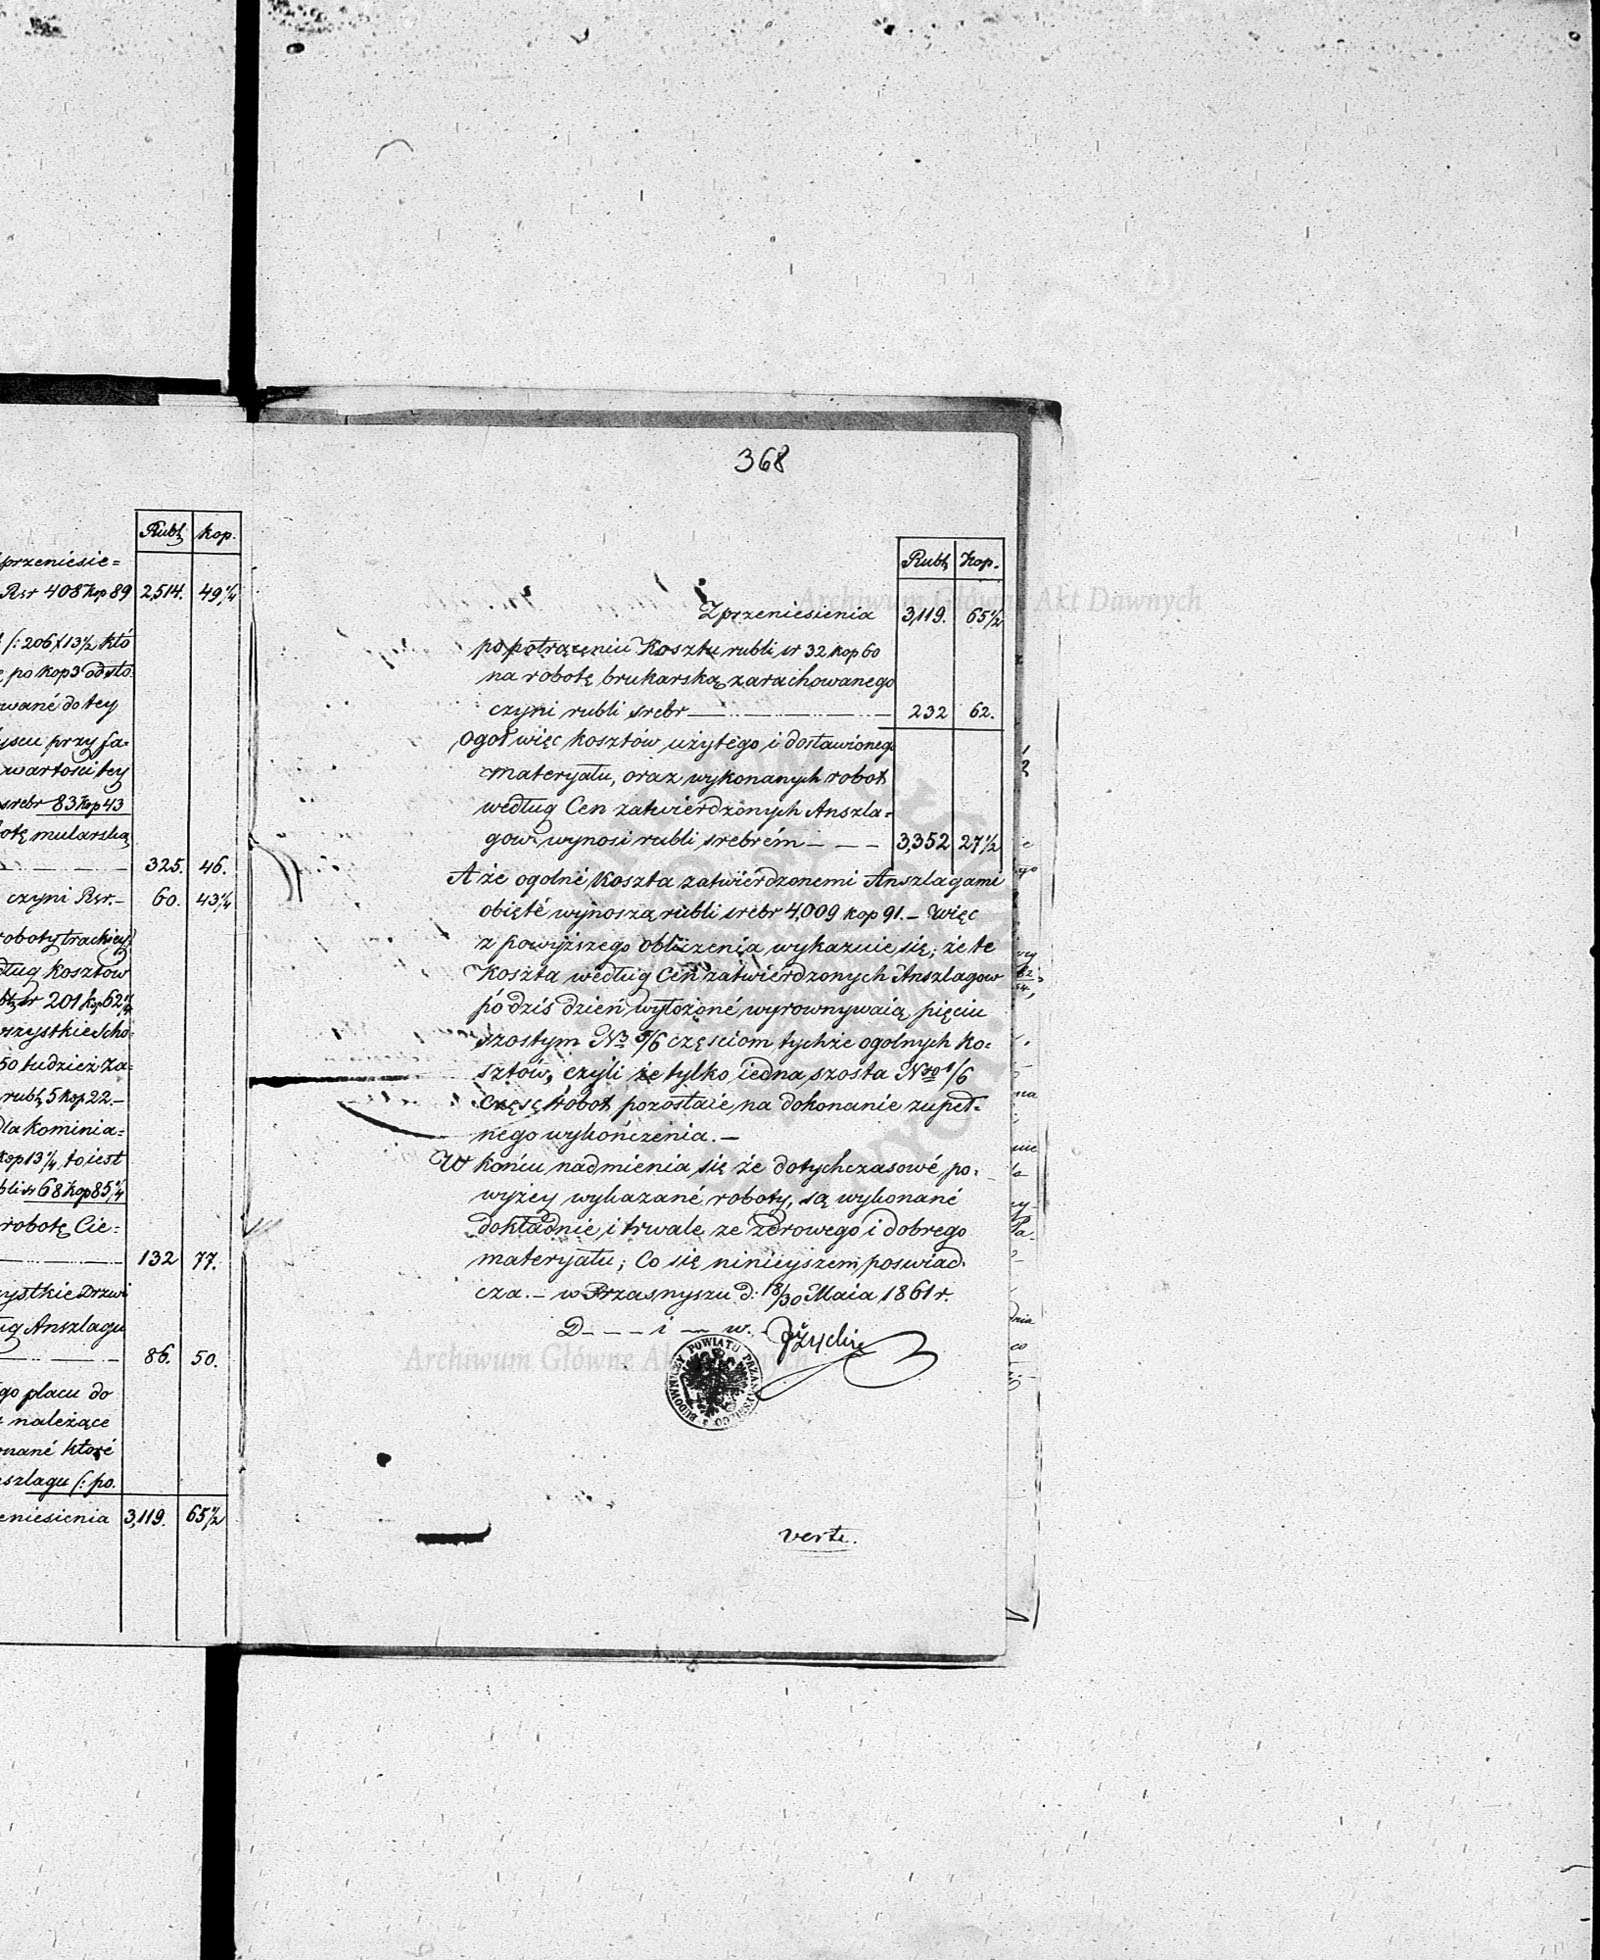 Rubl kop.
przeniesie=
Rsr 408 Kop 89 2,514. 49 1/4
(: 206 f 13 1/2 kło
po kop 3 od sto.
wané do tey
yscu przy fa=
wartości tey
srebr 83 Kop 43
otę mularską
325. 46.
czyni Rsr.- 60. 43 1/4
roboty trackiey
dług Kosztów
sr 201 kop 62 1/4
wszystkie Scho=
50 tudzież za=
rubl 5 Kop 22.-
dla kominia=
Kop 13 1/4, to iest
bli sr 68 Kop 85 1/4
robotę Cie=
132 77.
zystkie Drzwi
ug Anszlagu
86. 50.
go placu do
należące
onané które
szlagu (: po.
eniesienia 3,119. 65 1/2
368
Rubl Kop.
Z przeniesienia 3,119. 65 1/2
po potrąceniu Kosztu rubli sr 32 kop 60
na robotę brukarską zarachowanego
czyni rubli srebr 232 62.
Ogoł więc kosztów użytego i dostawionego
materyału, oraz wykonanych robot
według Cen zatwierdzonych Anszla=
gow wynosi rubli srebrém - - - 3,352 27 1/2
A że ogolné Koszta zatwierdzonemi Anszlagami
obięté wynoszą rubli srebr 4,009 kop 91.- więc
z powyższego obliczenia wykazuie się; że te
Koszta według Cen zatwierdzonych Anszlagow
po dziś dzień wyłożoné wyrownywaią pięciu
szostym No 5/6 częsciom tychże ogolnych ko=
sztów, czyli że tylko iedna szosta Nro 1/6
Częsc robot pozostaie na dokonanie zupeł=
nego wykończenia.-
W końcu nadmienia się że dotychczasowé po=
wyżey wykazané roboty, są wykonané
dokładnie i trwale ze zdrowego i dobrego
materyału; Co się ninieyszem poswiad=
cza.- w Przasnyszu d. 18/30 Maia 1861 r.
D - - - i - w.
BUDOWNICZY POWIATU PRZASNYSKIEGO
verte.
Archiwum Główne Akt Dawnych
Archiwum Główne Akt Dawnych